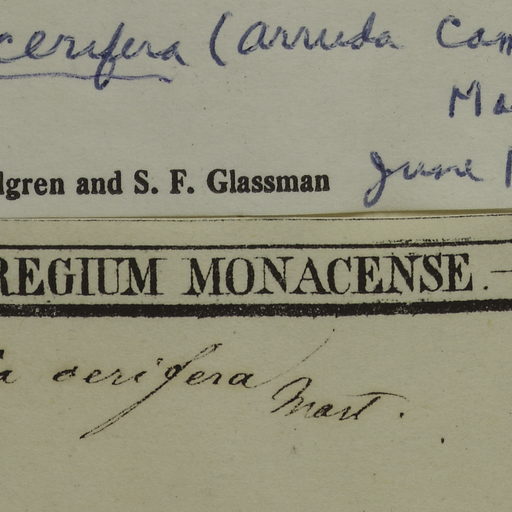 cerifera (Arruda Cam
Ma
dgren and S. F. Glassman June
REGIUM MONACENSE.—
a cerifera Mart.